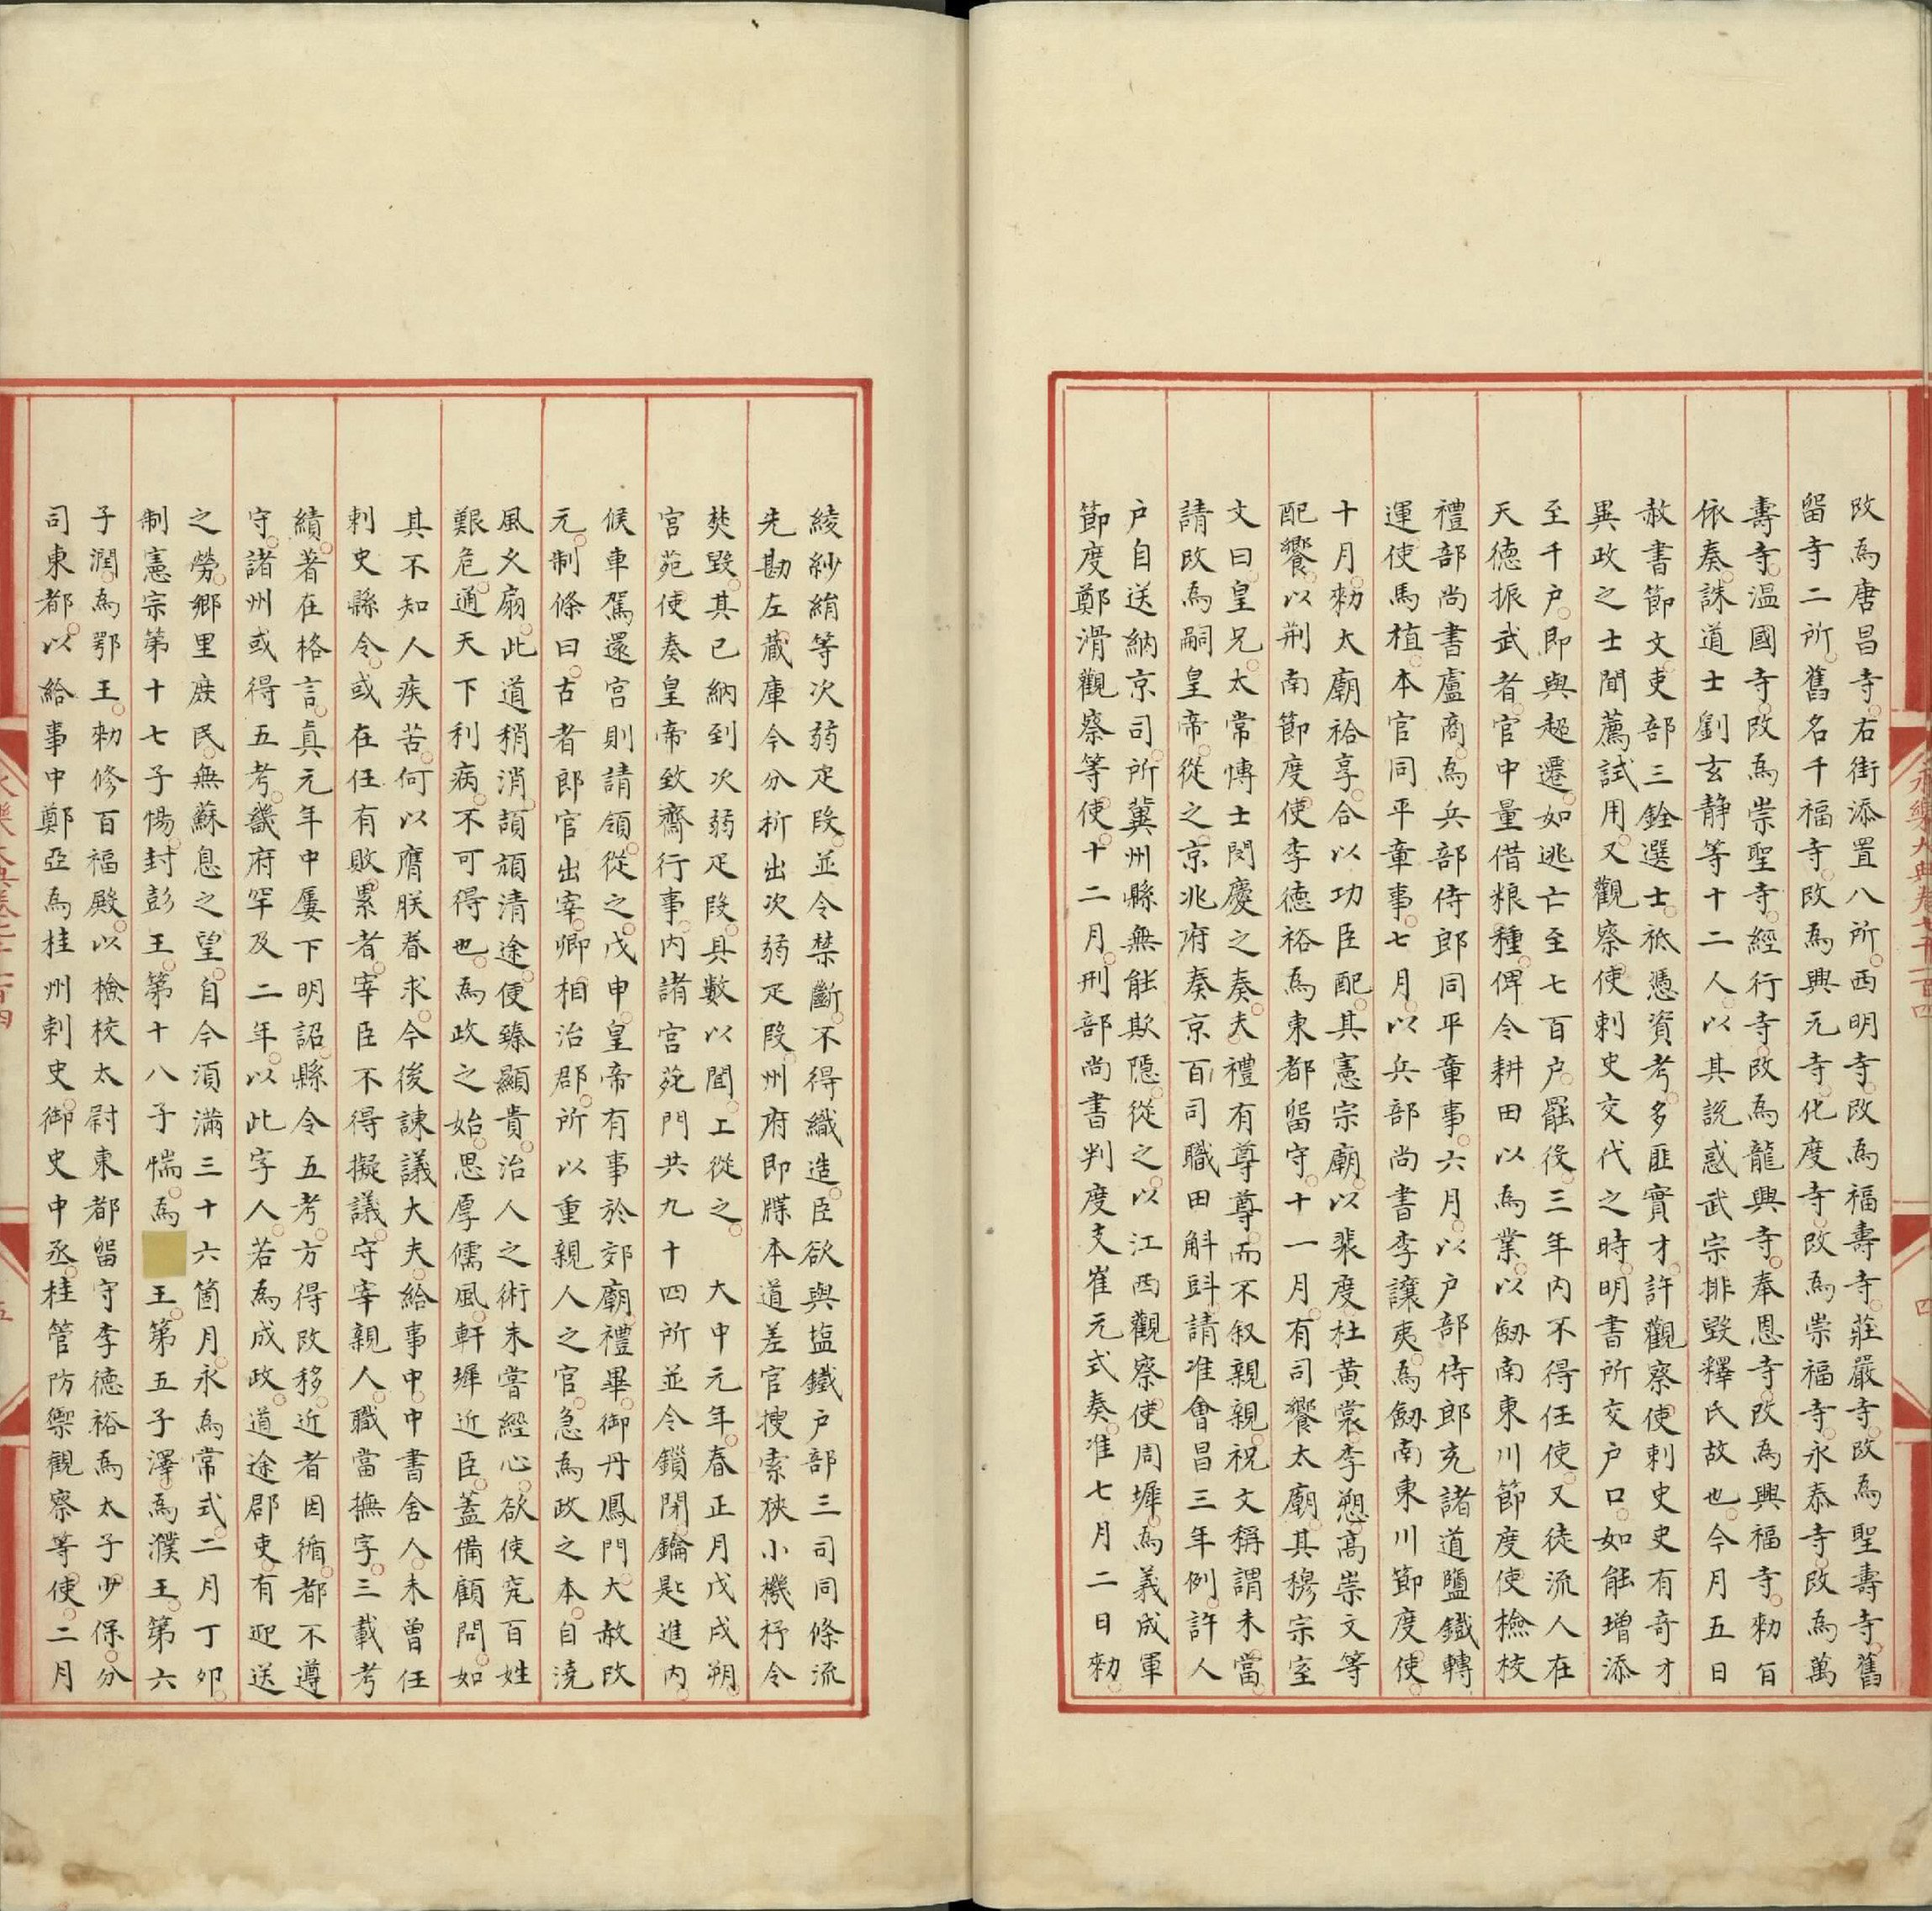 改為唐昌寺右街添置八所西明寺改為福壽寺莊嚴寺改為聖壽寺舊
留寺二所舊名千福寺改為興元寺化度寺改為崇福寺永泰寺改為萬
壽寺溫國寺改為崇聖寺經行寺改為龍興寺奉恩寺改為興福寺勑旨
依奏誅道士劉玄静等十二人以其説惑武宗排毀釋氏故也今月五日
赦書節文吏部三銓選士祗憑資考多匪實才許觀察使刺史史有奇才
異政之士聞薦試用又觀察使刺史交代之時明書所交户口如能增添
至千户即與超遷如逃亡至七百户罷後三年内不得任使又徒流人在
天德振武者官中量借粮種俾令耕田以為業以劒南東川節度使檢校
禮部尚書盧商為兵部侍郎同平章事六月以户部侍郎充諸道鹽鐵轉
運使馬植本官同平章事七月以兵部尚書李讓夷為劒南東川節度使
十月勑太廟祫享合以功臣配其憲宗廟以裴度杜黄裳李愬高崇文等
配饗以荆南節度使李德裕為東都留守十一月有司饗太廟其穆宗室
文曰皇兄太常博士閔慶之奏夫禮有尊尊而不叙親親祝文稱謂未當
請改為嗣皇帝從之京兆府奏京百司職田斛㪷請准會昌三年例許人
户自送納京司所冀州縣無能欺隱從之以江西觀察使周墀為義成軍
節度鄭滑觀察等使十二月刑部尚書判度支崔元式奏准七月二日勑
綾紗絹等次弱疋段並令禁斷不得織造臣欲與塩鐵户部三司同條流
先勘左藏庫今分析出次弱疋段州府即牒本道差官搜索狹小機杼令
焚毀其已納到次弱疋段具數以聞上從之 大中元年春正月戊戌朔
宫苑使奏皇帝致齋行事内諸宫苑門共九十四所並令鎖閉鑰匙進内
候車駕還宫則請領從之戊申皇帝有事於郊廟禮畢御丹鳳門大赦改
元制條曰古者郎官出宰卿相治郡所以重親人之官急為政之本自澆
風久扇此道稍消頡頏清途便臻顯貴治人之術未嘗經心欲使究百姓
艱危通天下利病不可得也為政之始思厚儒風軒墀近臣蓋備顧問如
其不知人疾苦何以膺朕眷求今後諫議大夫給事中中書舍人未曾任
刺史縣令或在任有敗累者宰臣不得擬議守宰親人職當撫字三載考
績著在格言貞元年中屢下明詔縣令五考方得改移近者因循都不遵
守諸州或得五考畿府罕及二年以此字人若為成政道途郡吏有迎送
之勞鄉里庶民無蘇息之望自今須滿三十六箇月永為常式二月丁卯
制憲宗第十七子惕封彭王第十八子惴為 王第五子澤為濮王第六
子潤為鄂王勑修百福殿以檢校太尉東都留守李德裕為太子少保分
司東都以給事中鄭亞為桂州刺史御史中丞桂管防禦觀察等使二月